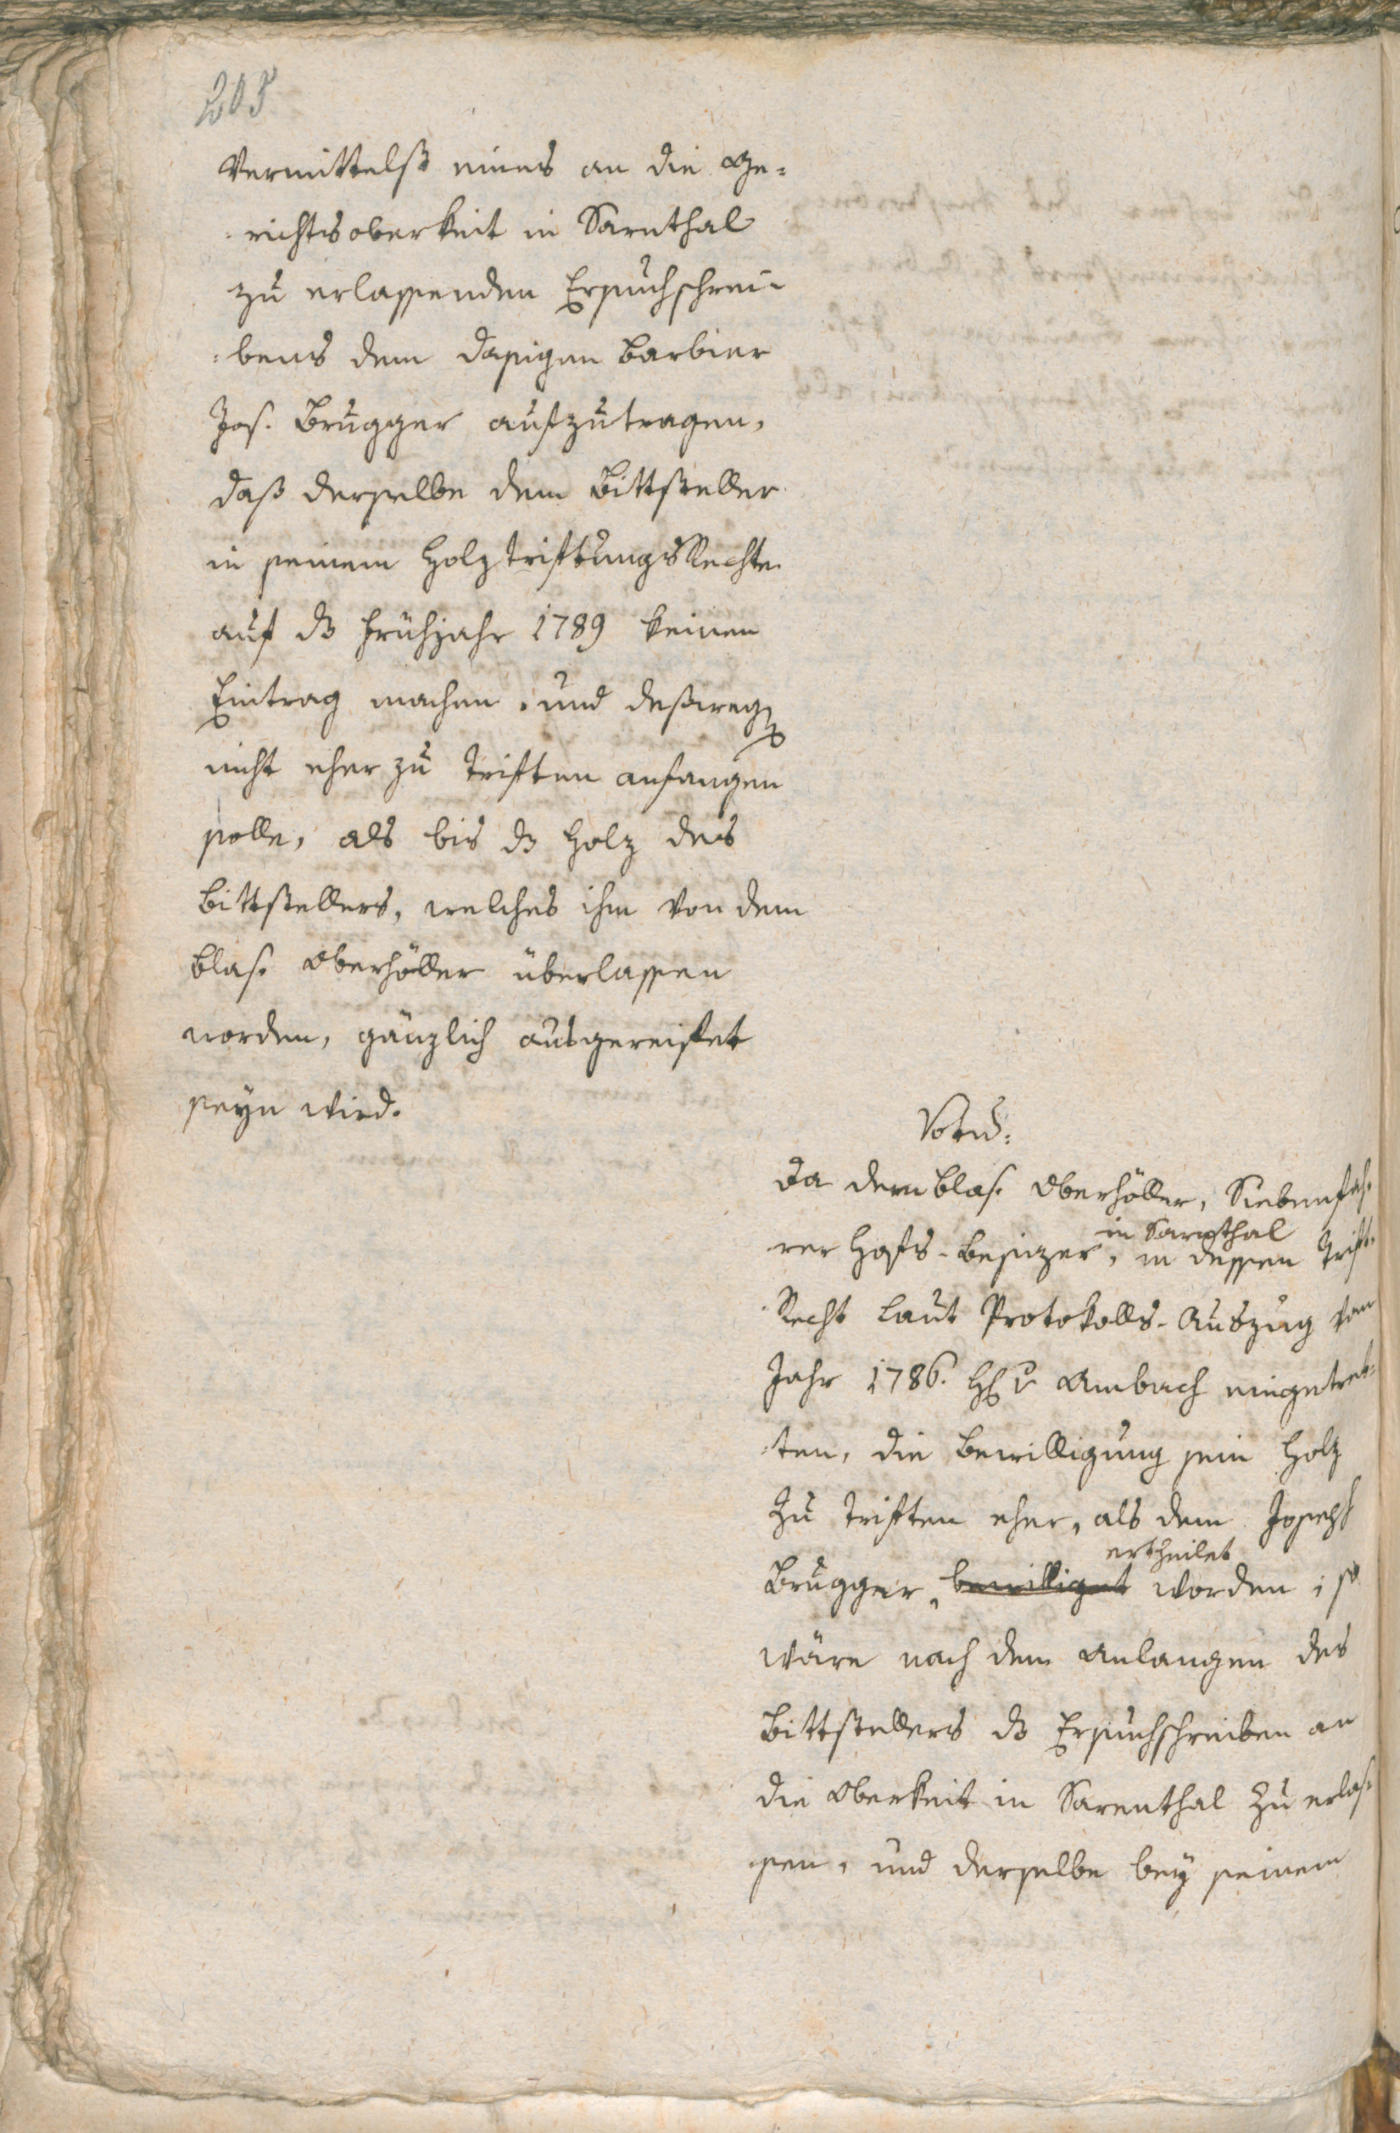 205
Vermittelst eines an die Ge=
richtsoberkeit in Sarnthal
zu erlassenden Ersuchschrei=
=bens dem dasigen Barbier
Jos. Brugger aufzutragen,
daß derselbe dem Bittsteller
in seinem HolztriftungsRechte
auf dz Frühjahr 1789 keinen
Eintrag machen, und deßweg
nicht eher zu triften anfangen
solle, als bis dz Holz des
Bittstellers, welches ihm von dem
Blas. Oberhöller überlassen
worden, gänzlich ausgereistet
seyn wird.
Votu:
Da dem Blas. Oberhöller, Siebenfah=
rer Hofs-Besizer, in dessen Trift=
in Sarnthal
Recht laut Protokolls-Auszug vom
Jahr 1786. H v Ambach eingetret=
=ten, die Bewilligung sein Holz
zu triften eher, als dem Joseph
ertheilet
Brugger, bewilliget worden; so
wäre nach dem Anlangen des
Bittstellers dz Ersuchschreiben an
die Oberkeit in Sarenthal zu erlas=
sen, und derselbe bey seinem